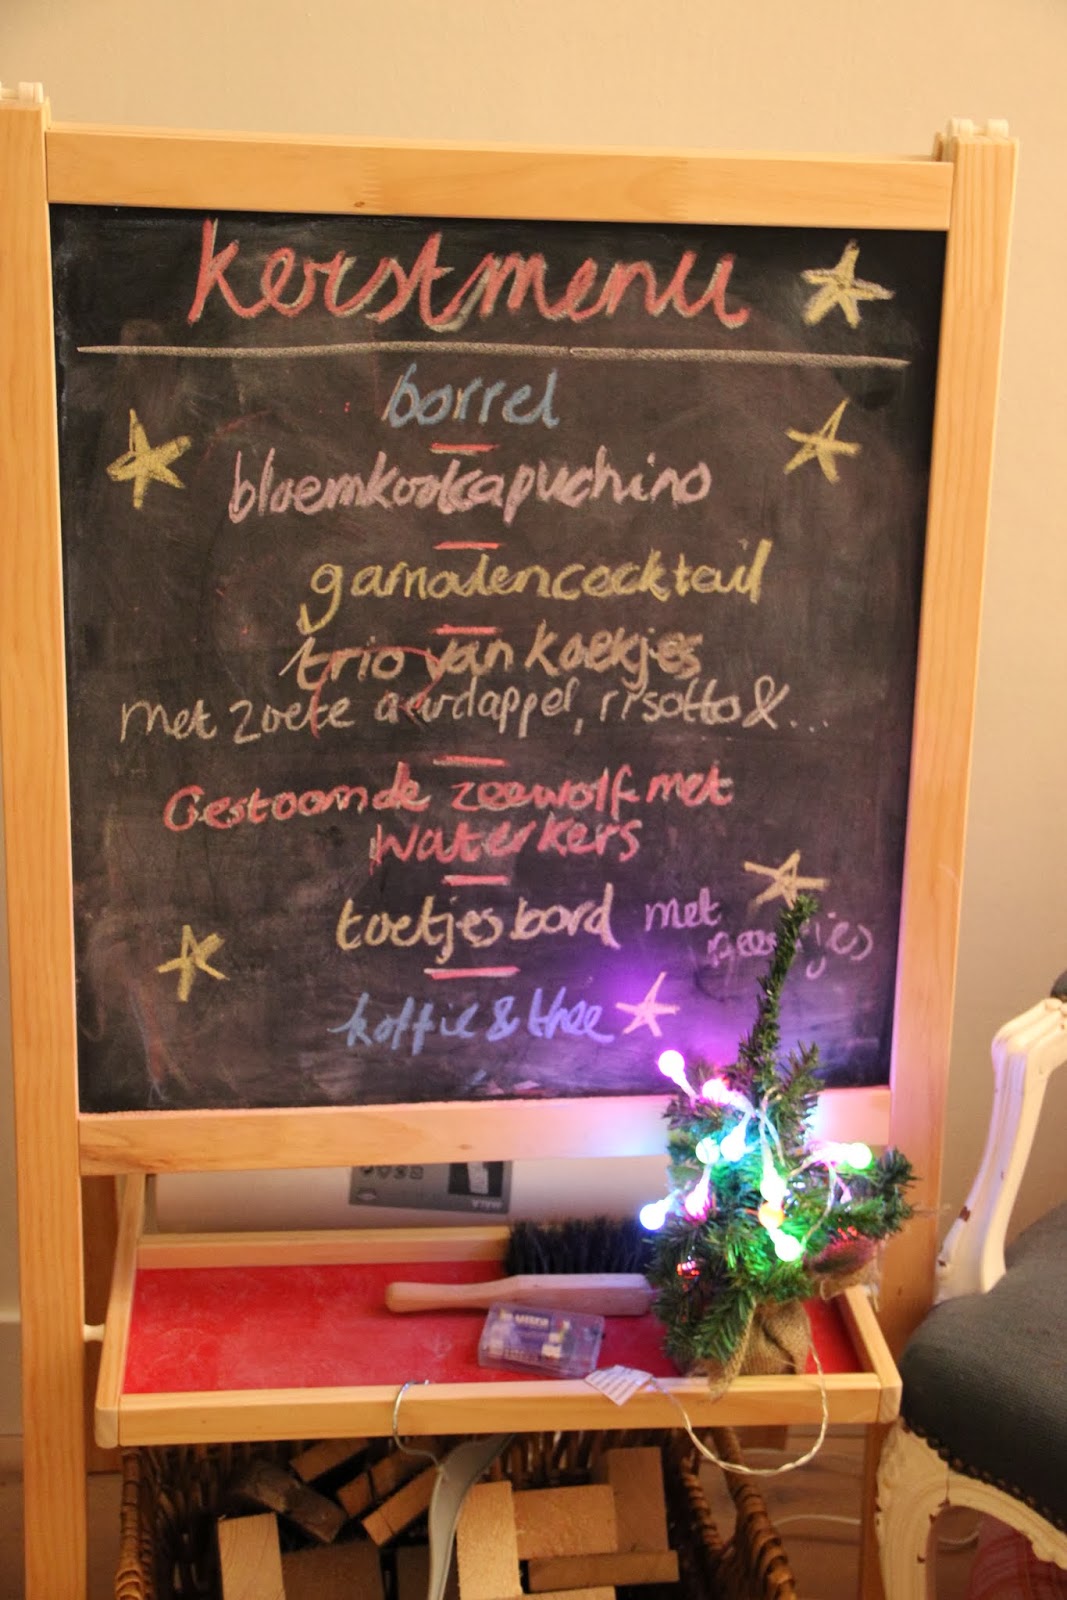 kerstmenu
borrel
bloemkoolcapuchino
garnalencocktail
trio van koekjes
met zoete aardappel, risotto & ...
Gestoomde zeewolf met
waterkers
toetjesbord met
koffie & thee